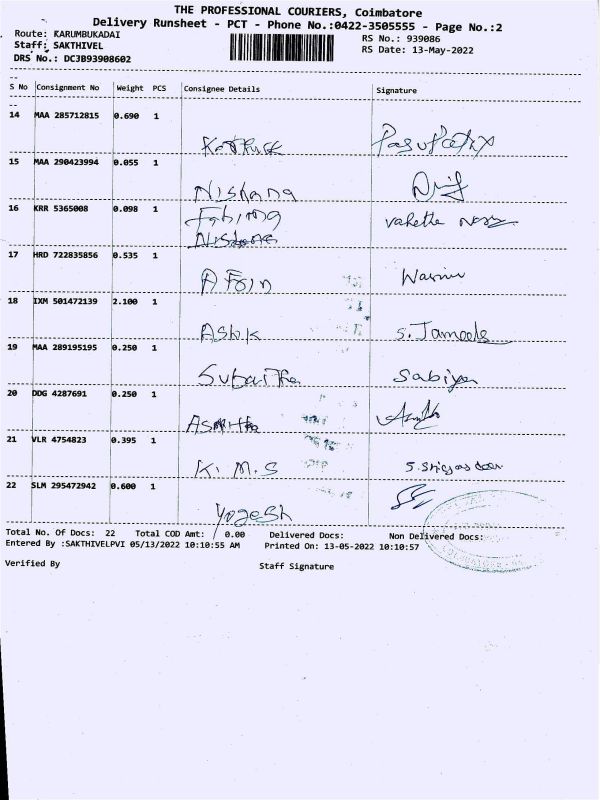 THE PROFESSIONAL COURIERS, Coimbatore
Delivery Runsheet - PCT - Phone No.:0422-3505555 - Page No.:2
Route: KARUMBUKADAI
RS No.: 939086
Staff: SAKTHIVEL
RS Date: 13-May-2022
DRS No.: DCJB93908602
S No Consignment No Weight PCS Consignee Details Signature
14 MAA 285712815 0.690 1
15 MAA 290423994 0.055 1
Nishana
16 KRR 5365008 0.098 1
17 HRD 722835856 0.535 1
Afrin
18 IXM 501472139 2.100 1
Ashok
19 MAA 289195195 0.250 1
20 DDG 4287691 0.250 1
21 VLR 4754823 0.395 1
K. M. S
22 SLM 295472942 0.600 1
Yogesh
Total No. Of Docs: 22 Total COD Amt: 0.00 Delivered Docs: Non Delivered Docs:
Entered By :SAKTHIVELPVI 05/13/2022 10:10:55 AM Printed On: 13-05-2022 10:10:57
Verified By Staff Signature